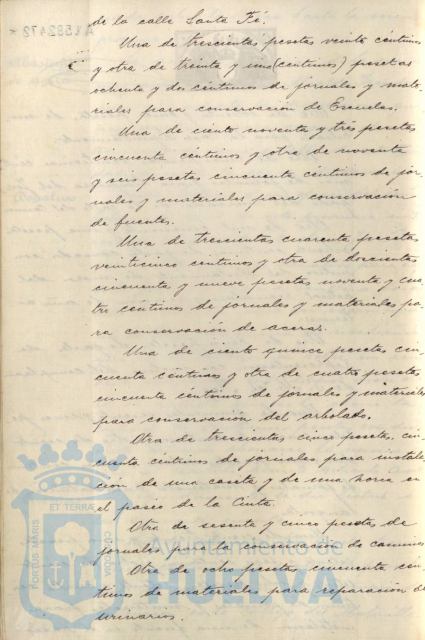 de la calle Santa Fé.
Una de trescientas pesetas veinte céntimos
y otra de treinta y una (céntimos) pesetas
ochenta y dos céntimos de jornales y mate-
riales para conservación de Escuelas.
Una de ciento noventa y tres pesetas
cincuenta céntimos y otra de noventa
y seis pesetas cincuenta céntimos de jor-
nales y materiales para conservación
de fuentes.
Una de trescientas cuarenta pesetas
veinticinco céntimos y otra de doscientas
cincuenta y nueve pesetas noventa y cua-
tro céntimos de jornales y materiales pa-
ra conservación de aceras.
Una de ciento quince pesetas cin-
cuenta céntimos y otra de cuatro pesetas
cincuenta céntimos de jornales y materiales
para conservación del arbolado.
Otra de trescientas cinco pesetas, cin-
cuenta céntimos de jornales para instala-
ción de una caseta y de una horca en
el paseo de la Cinta.
Otra de sesenta y cinco pesetas de
jornales para la conservación de caminos
Otra de ocho pesetas cincuenta cén-
timos de materiales para reparación de
urinarios.
PORTUS MARIS ET TERRAE CUSTODIA
Ayuntamiento de
HUELVA